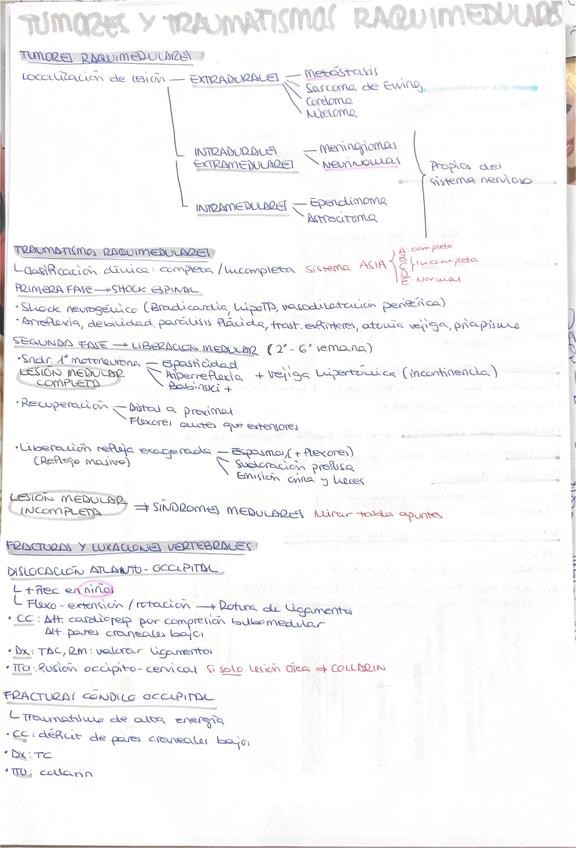 TUMORES Y TRAUMATISMOS RAQUIMEDULARES
TUMORES RAQUIMEDULARES
Localización de lesión — EXTRADURALES — Metástasis
Sarcoma de Ewing
Cordoma
Mieloma
INTRADURALES EXTRAMEDULARES — Meningiomas
Neurinomas
Propios del sistema nervioso
INTRAMEDULARES — Ependimoma
Astrocitoma
TRAUMATISMOS RAQUIMEDULARES
Clasificación clínica: completa/incompleta Sistema ASIA
A: completa
B
C
D
Incompleta
E: Normal
PRIMERA FASE → SHOCK ESPINAL
· Shock neurogénico (Bradicardia, hipoTA, vasodilatación periférica)
· Arreflexia, debilidad, parálisis fláccida, trast. esfínteres, atonía vejiga, priapismo
SEGUNDA FASE → LIBERACIÓN MEDULAR (2ª-6ª semana)
· Sndr. 1ª motoneurona — Espasticidad
LESIÓN MEDULAR COMPLETA
Hiperreflexia + vejiga hipertónica (incontinencia)
Babinski +
· Recuperación — Distal a proximal
Flexores antes que extensores
· Liberación refleja exagerada — Espasmos (+ flexores)
(Reflejo masivo) Sudoración profusa
Emisión orina y heces
LESIÓN MEDULAR INCOMPLETA ⇒ SÍNDROMES MEDULARES Mirar tabla apuntes
FRACTURAS Y LUXACIONES VERTEBRALES
DISLOCACIÓN ATLANTO-OCCIPITAL
+ frec en niños
Flexo-extensión/rotación → Rotura de ligamentos
· CC: Alt. cardioresp por compresión bulbomedular
Alt. pares craneales bajos
· Dx: TAC, RM: valorar ligamentos
· TTO: Fusión occipito-cervical Si solo lesión ósea ⇒ COLLARÍN
FRACTURAS CÓNDILO OCCIPITAL
Traumatismo de alta energía
· CC: déficit de pares craneales bajos
· Dx: TC
· TTO: collarín